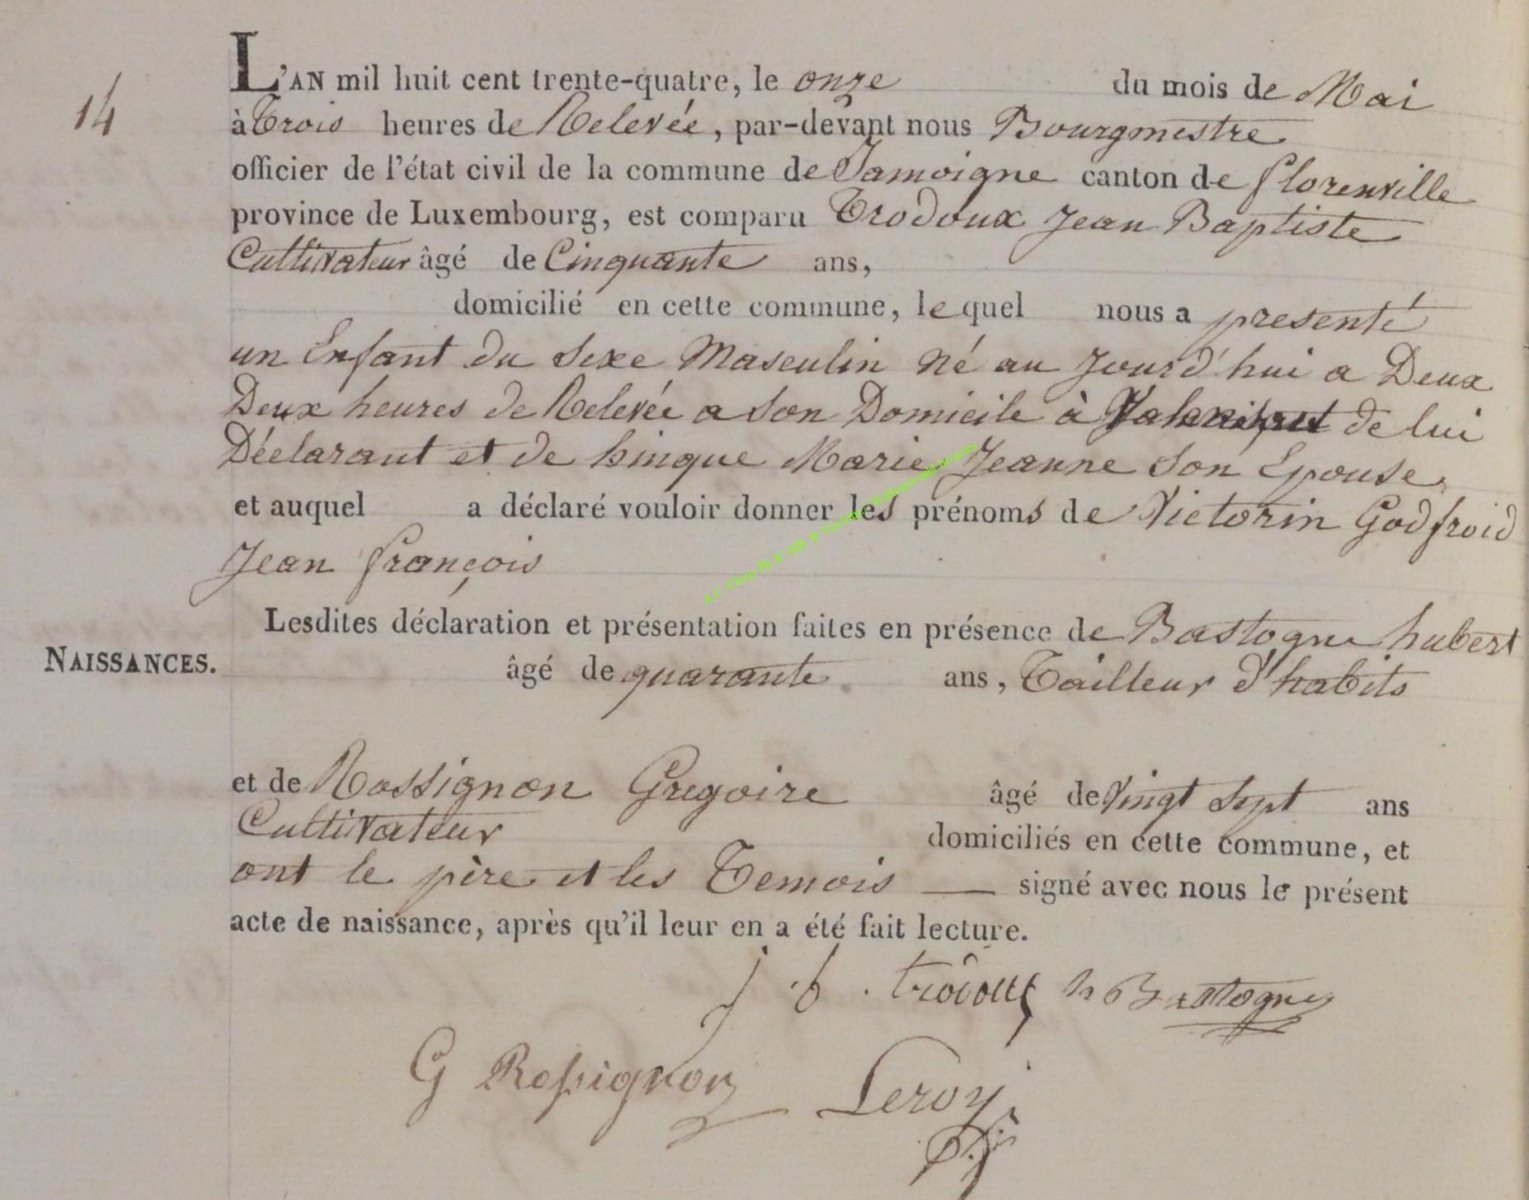 14
L'AN mil huit cent trente-quatre, le onze du mois de Mai
à Trois heures de Relevée, par-devant nous Bourgmestre
officier de l'état civil de la commune de Jamoigne canton de florenville
province de Luxembourg, est comparu Trodoux Jean Baptiste
Cultivateur âgé de Cinquante ans,
domicilié en cette commune, lequel nous a presenté
un Enfant du Sexe Masculin né au Jourd'hui a Deux
Deux heures de Relevée a Son Domicile à de lui
Déclarant et de hinque Marie Jeanne Son Epouse
et auquel a déclaré vouloir donner les prénoms de Victorin Godfroid
Jean françois
Lesdites déclaration et présentation faites en présence de Bastogne hubert
NAISSANCES.
âgé de quarante ans, Tailleur d'habits
et de Rossignon Gregoire âgé de Vingt Sept ans
Cultivateur domiciliés en cette commune, et
ont le père et les Temois — signé avec nous le présent
acte de naissance, après qu'il leur en a été fait lecture.
j b . trodoux h Bastogne
G Rossignon Leroy